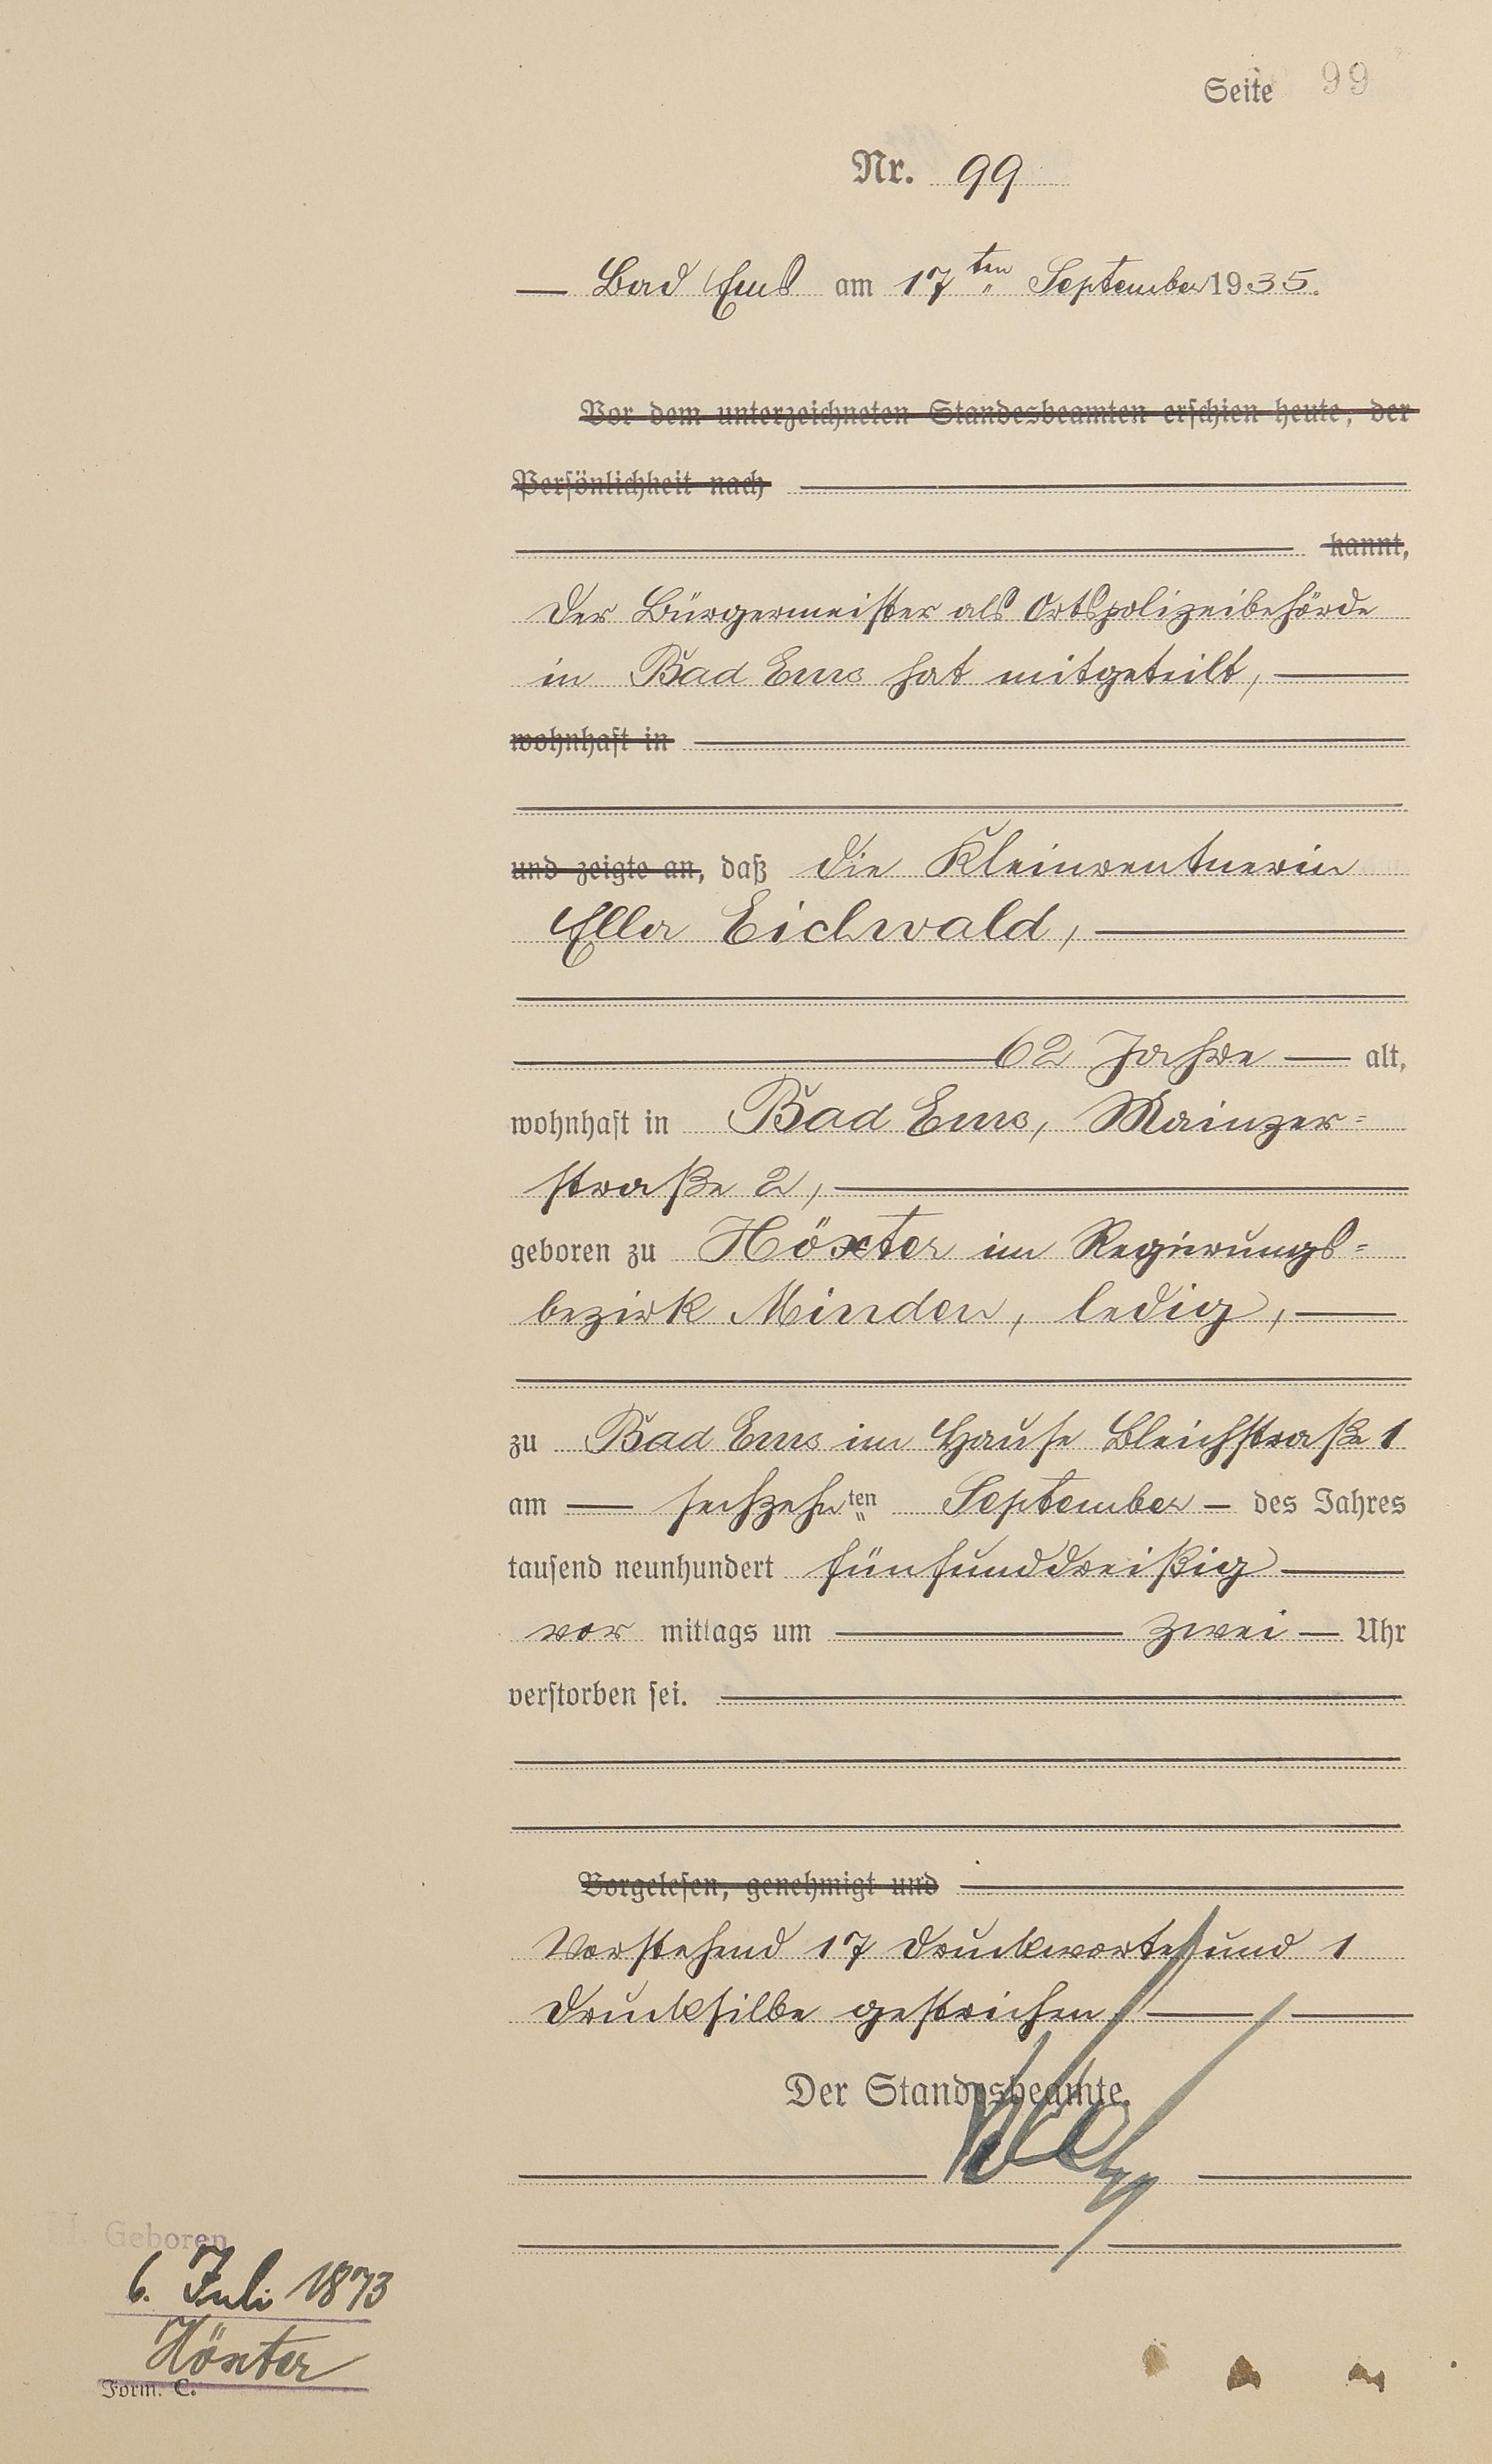 Seite 99
Nr. 99
Bad Ems am 17ten September 1935.
Vor dem unterzeichneten Standesbeamten erschien heute, der
Persönlichkeit nach
kannt,
Der Bürgermeister als Ortspolizeibehörde
in Bad Ems hat mitgeteilt,
wohnhaft in
und zeigte an, daß die Kleinrentnerin
Ella Eichwald,
62 Jahre alt,
wohnhaft in Bad Ems, Mainzer=
straße 2,
geboren zu Höxter im Regierungs=
bezirk Minden, ledig,
zu Bad Ems im Hause Bleichstraße 1
am sechzehnten September des Jahres
tausend neunhundert fünfunddreißig
vor mittags um zwei Uhr
verstorben sei.
Vorgelesen, genehmigt und
Vorstehend 17 Druckworte und 1
Drucksilbe gestrichen.
Der Standesbeamte.
H. Geboren
6. Juli 1873
Höxter
Form. C.